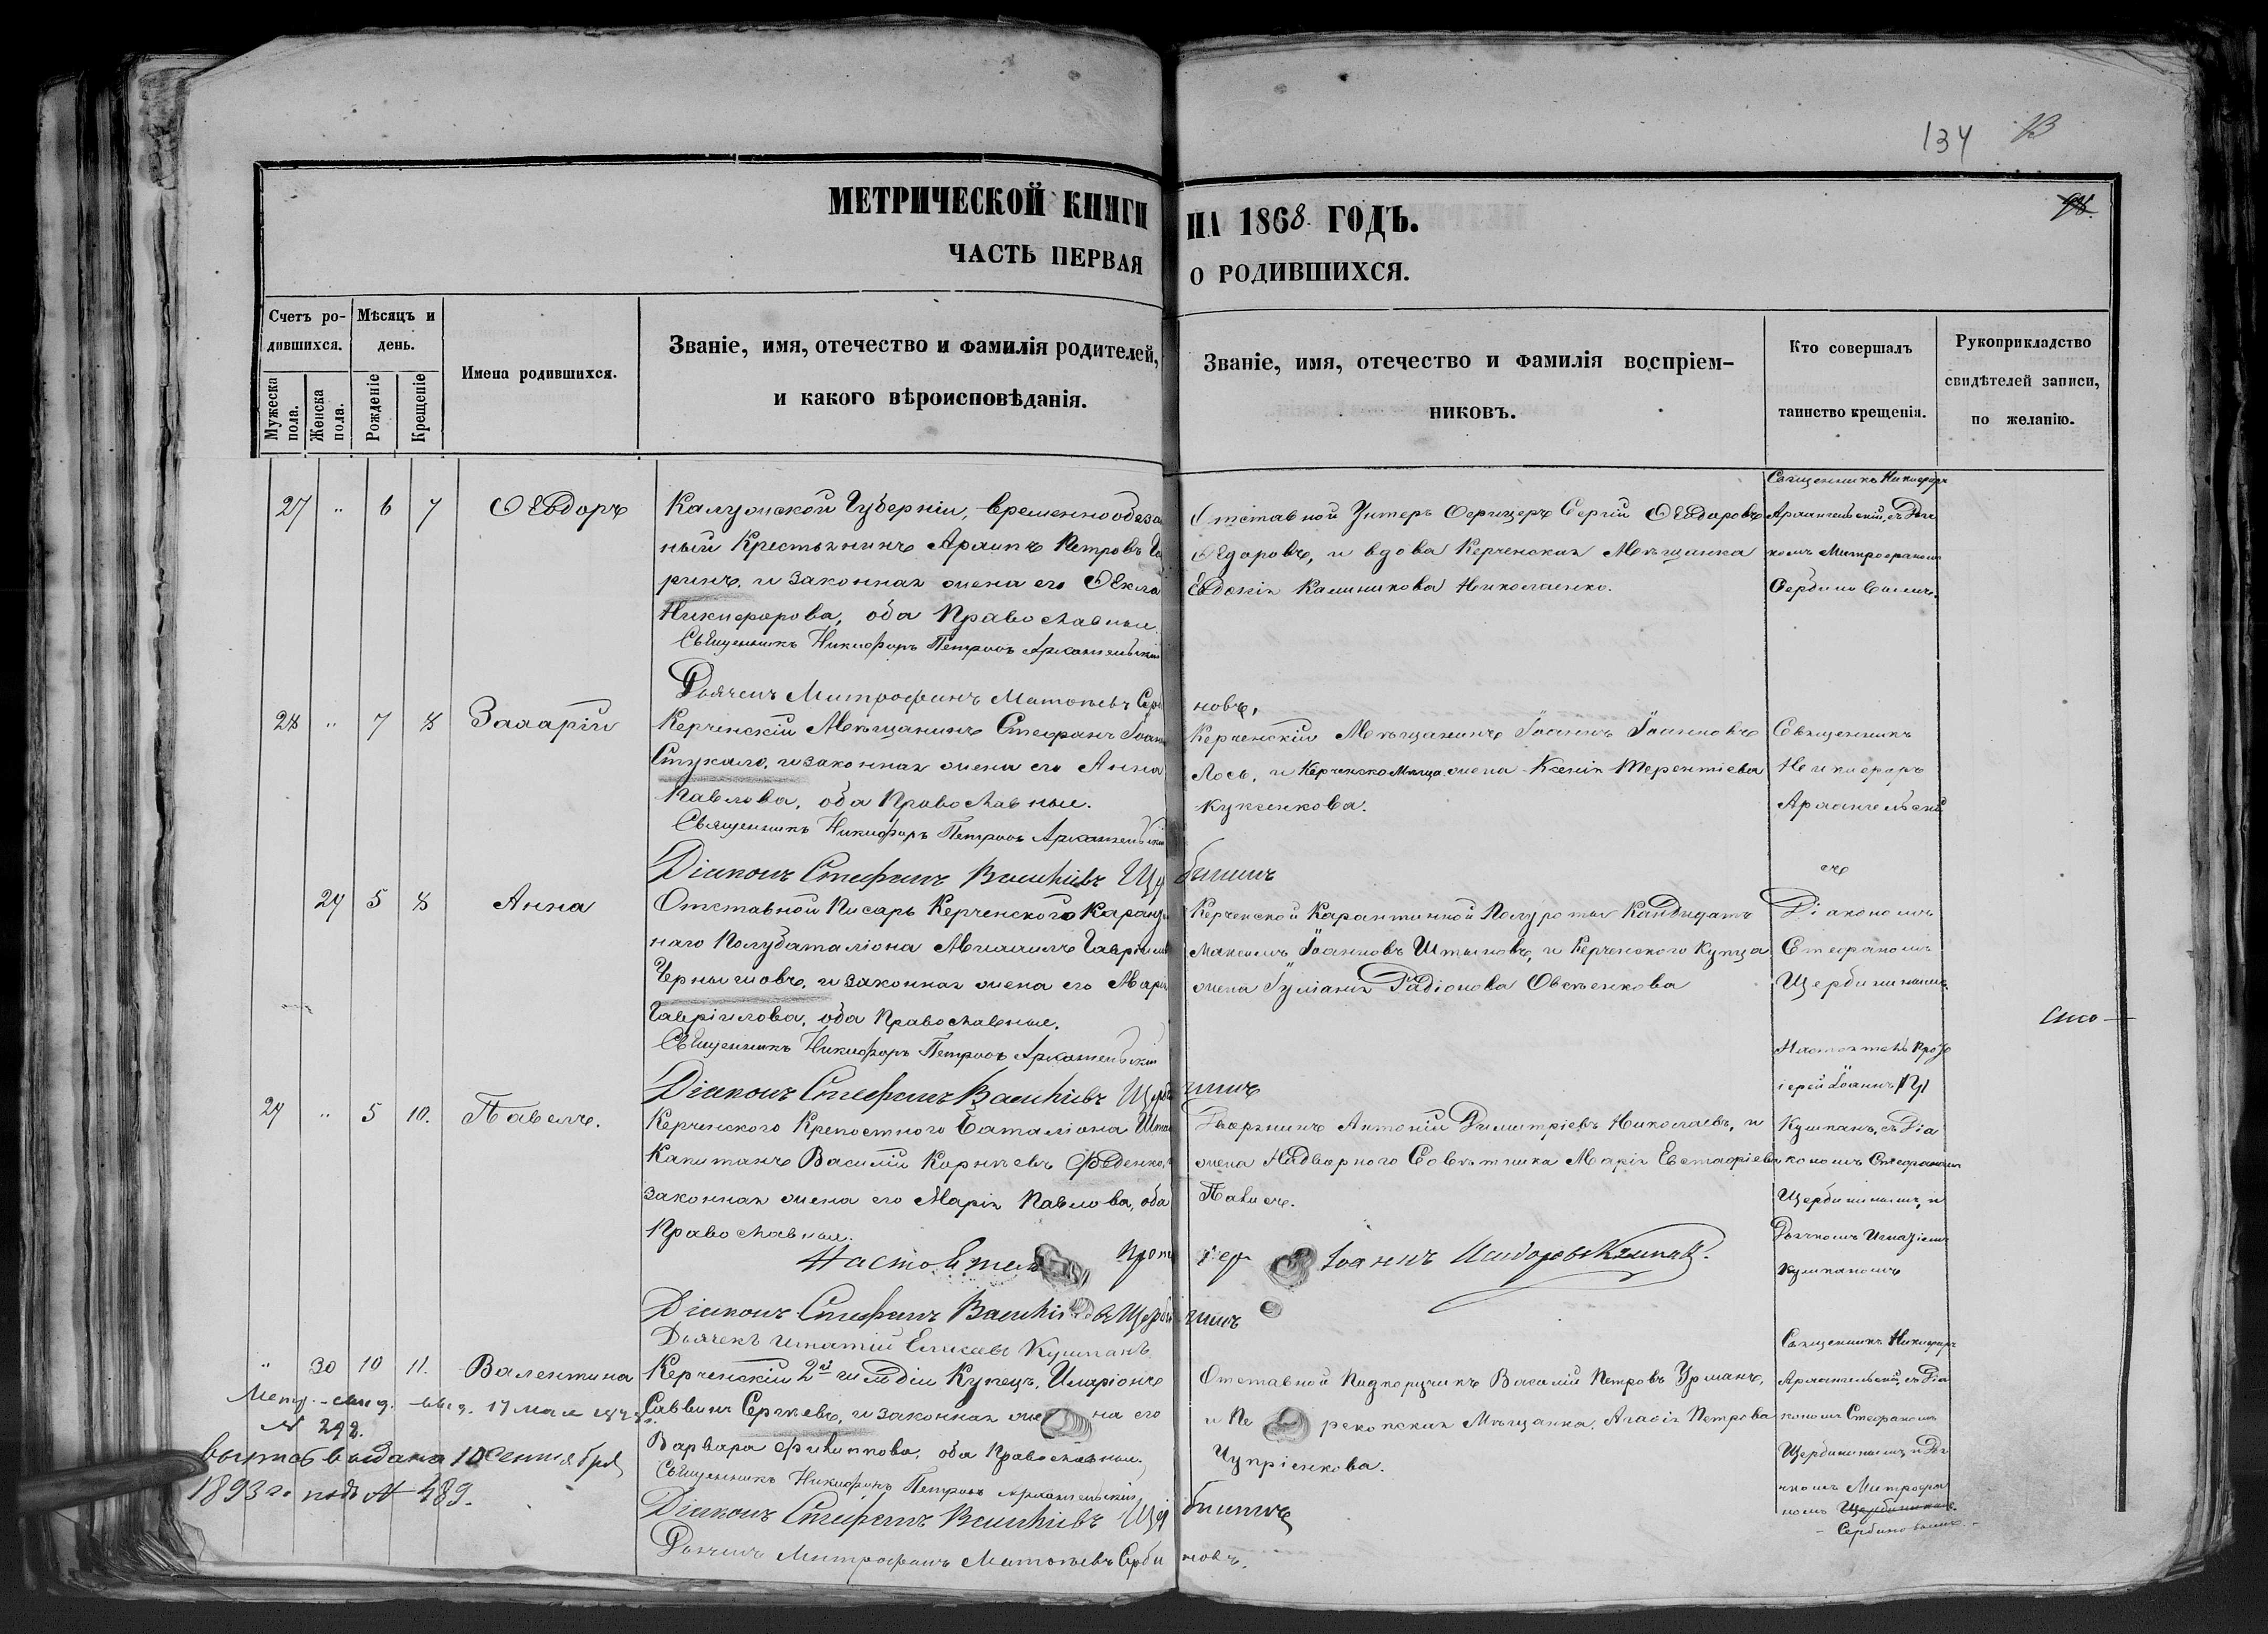 134
13
98.
МЕТРИЧЕСКОЙ КНИГИ НА 1868 ГОДЪ.
ЧАСТЬ ПЕРВАЯ О РОДИВШИХСЯ.
Счетъ ро-
дившихся.
Мужеска пола.
Женска пола.
Мѣсяцъ и
день.
Рожденіе
Крещеніе
Имена родившихся.
Званіе, имя, отчество и фамилія родителей,
и какого вѣроисповѣданія.
Званіе, имя, отечество и фамилія воспріем-
никовъ.
Кто совершалъ
таинство крещенія.
Рукоприкладство
свидѣтелей записи,
по желанію.
27 " 6 7 Ѳеодоръ
Калужской Губерніи, временнообяза
ный Крестьянинъ Архипъ Петровъ
ринъ, и законная жена его Ѳекла
Никифорова, оба Православные.
Священникъ Никифоръ Петровъ Архангельскій
Дьячекъ Митрофанъ Матѳеевъ Серб новъ,
Отставной Унтеръ Офицеръ Сергій Ѳеодоровъ
Ѳедоровъ, и вдова Керченская Мѣщанка
Евдокія Калиникова Николаенко.
Священникъ Никифоръ
Архангельскій, съ Дья
комъ Митрофаномъ
Сербиновымъ.
28 " 7 8 Захарій
Керченскій Мѣщанинъ Стефанъ Іоанн
Стукало, и законная жена его Анна
Павлова, оба Православные.
Священникъ Никифоръ Петровъ Архангельскій
Діаконъ Стефанъ Васильевъ Щербининъ
Керченскій Мѣщанинъ Іоаннъ Іоанновъ
Лось, и Керченско Мѣща. жена Ксенія Терентіева
Кукленкова.
Священникъ
Никифоръ
Архангельскій
съ
" 29 5 8 Анна
Отставной Писарь Керченского Каранти
наго Полубаталіона Михаилъ Гавріиловъ
Чернышовъ, и законная жена его Марія
Гавріилова, оба Православные.
Священникъ Никифоръ Петровъ Архангельскій
Діаконъ Стефанъ Васильевъ Щербининъ
Керченской Карантинной Полуроты Кандидатъ
Максимъ Іоанновъ Штыновъ, и Керченского Купца
жена Іуліанія Радіонова Овсѣенкова
Діакономъ
Стефаномъ
Щербининымъ.
29 " 5 10. Павелъ.
Керченского Крепостного Баталіона Шта
Капитанъ Василій Корнѣевъ Феденко,
законная жена его Марія Павлова, оба
Православные.
Настоятель Прото іер Іоаннъ
Діаконъ Стефанъ Васильевъ Щербининъ
Дьячекъ Игнатій Елисеевъ Кушпанъ
Дворянинъ Антоній Димитріевъ Николаевъ, и
жена Надворного Совѣтника Марія Евстафіева
Настоятель Прото
іерей Іоаннъ
Кушпанъ, съ Діа
кономъ Стефаномъ
Щербининымъ, и
Дьячкомъ Игнатіемъ
Кушпаномъ
" 30 10 11. Валентина
Керченскій 2й гильдіи Купецъ, Иларіонъ
Саввинъ Сергѣевъ, и законная жена его
Варвара Филиппова, оба Православные.
Священникъ Никифоръ Петровъ Архангельскій
Діаконъ Стефанъ Васильевъ Щербининъ
Дьячекъ Митрофанъ Матѳеевъ Сербиновъ.
Отставной Подпоручикъ Василій Петровъ Урманъ,
и Перекопская Мѣщанка Агафія Петрова
Чупріенкова.
Священникъ Никифоръ
Архангельскій, съ Діа
кономъ Стефаномъ
Щербининымъ, и Дья
чкомъ Митрофа
номъ Щербининымъ
Сербиновымъ
17 Мая
№ 292.
выпись выдана 10 Сентября
1893 г. подъ № 489.